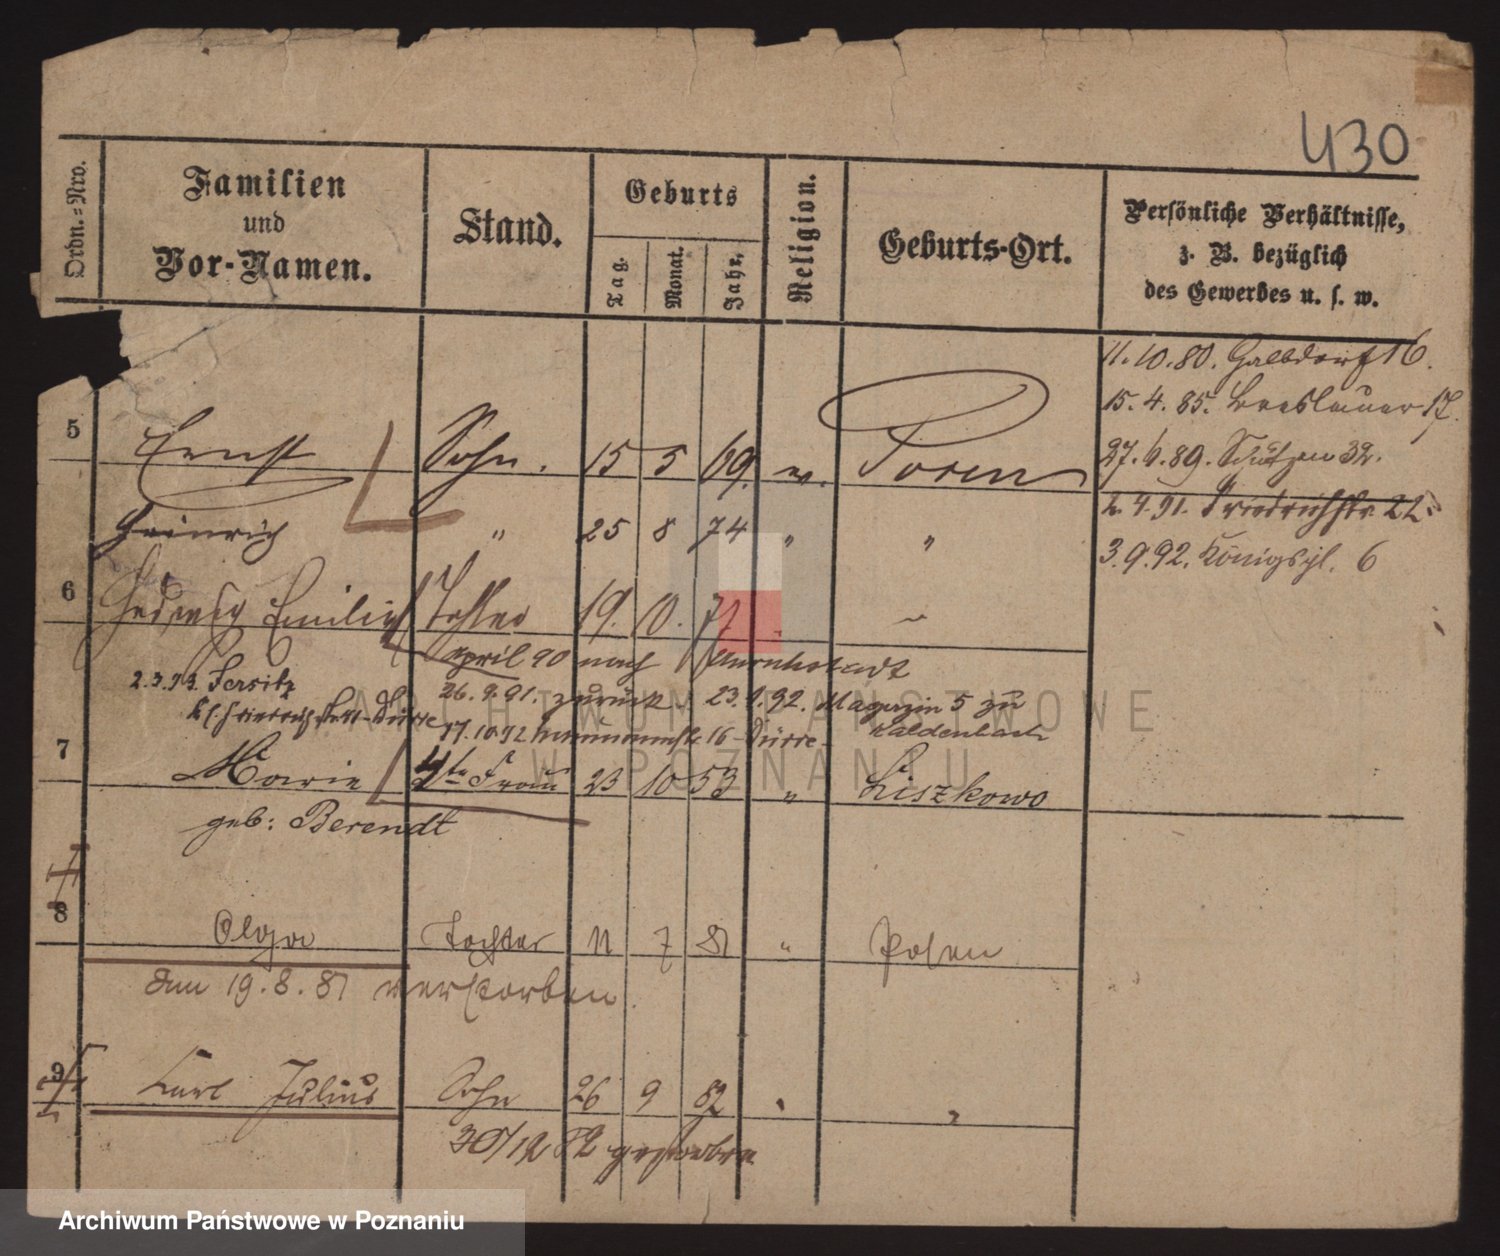 430
Ordn.=Nro.
Familien
und
Vor-Namen.
Stand.
Geburts
Tag.
Monat.
Jahr.
Religion.
Geburts-Ort.
Persönliche Verhältnisse,
z. B. bezüglich
des Gewerbes u. s. w.
11.10.80. Halbdorf 16.
15.4.85. Breslauer 17.
27.6.89. Schützen 32.
2.4.91. Friedrichstr. 22.
3.9.92. Königspl. 6
5 Ernst Sohn. 15 5 69. ev. Posen
Heinrich " 25 8 74 " "
6 Hedwig Emilie Tochter 19. 10. "
April 90 nach
2.3.93. Jersitz 26.9.91. zurück. 23. 92. Magazin 5 zu
Kaldenbach
17.10.92 16 - Dürre -
7 Marie Frau 23 10 53 " Liszkowo
geb: Berendt
8 Olga Tochter 11 7 81 " Posen
Am 19.8.81 verstorben
9 Carl Julius Sohn 26 9 82 " "
30/12 82 gestorben
ARCHIWUM PAŃSTWOWE
W POZNANIU
Archiwum Państwowe w Poznaniu